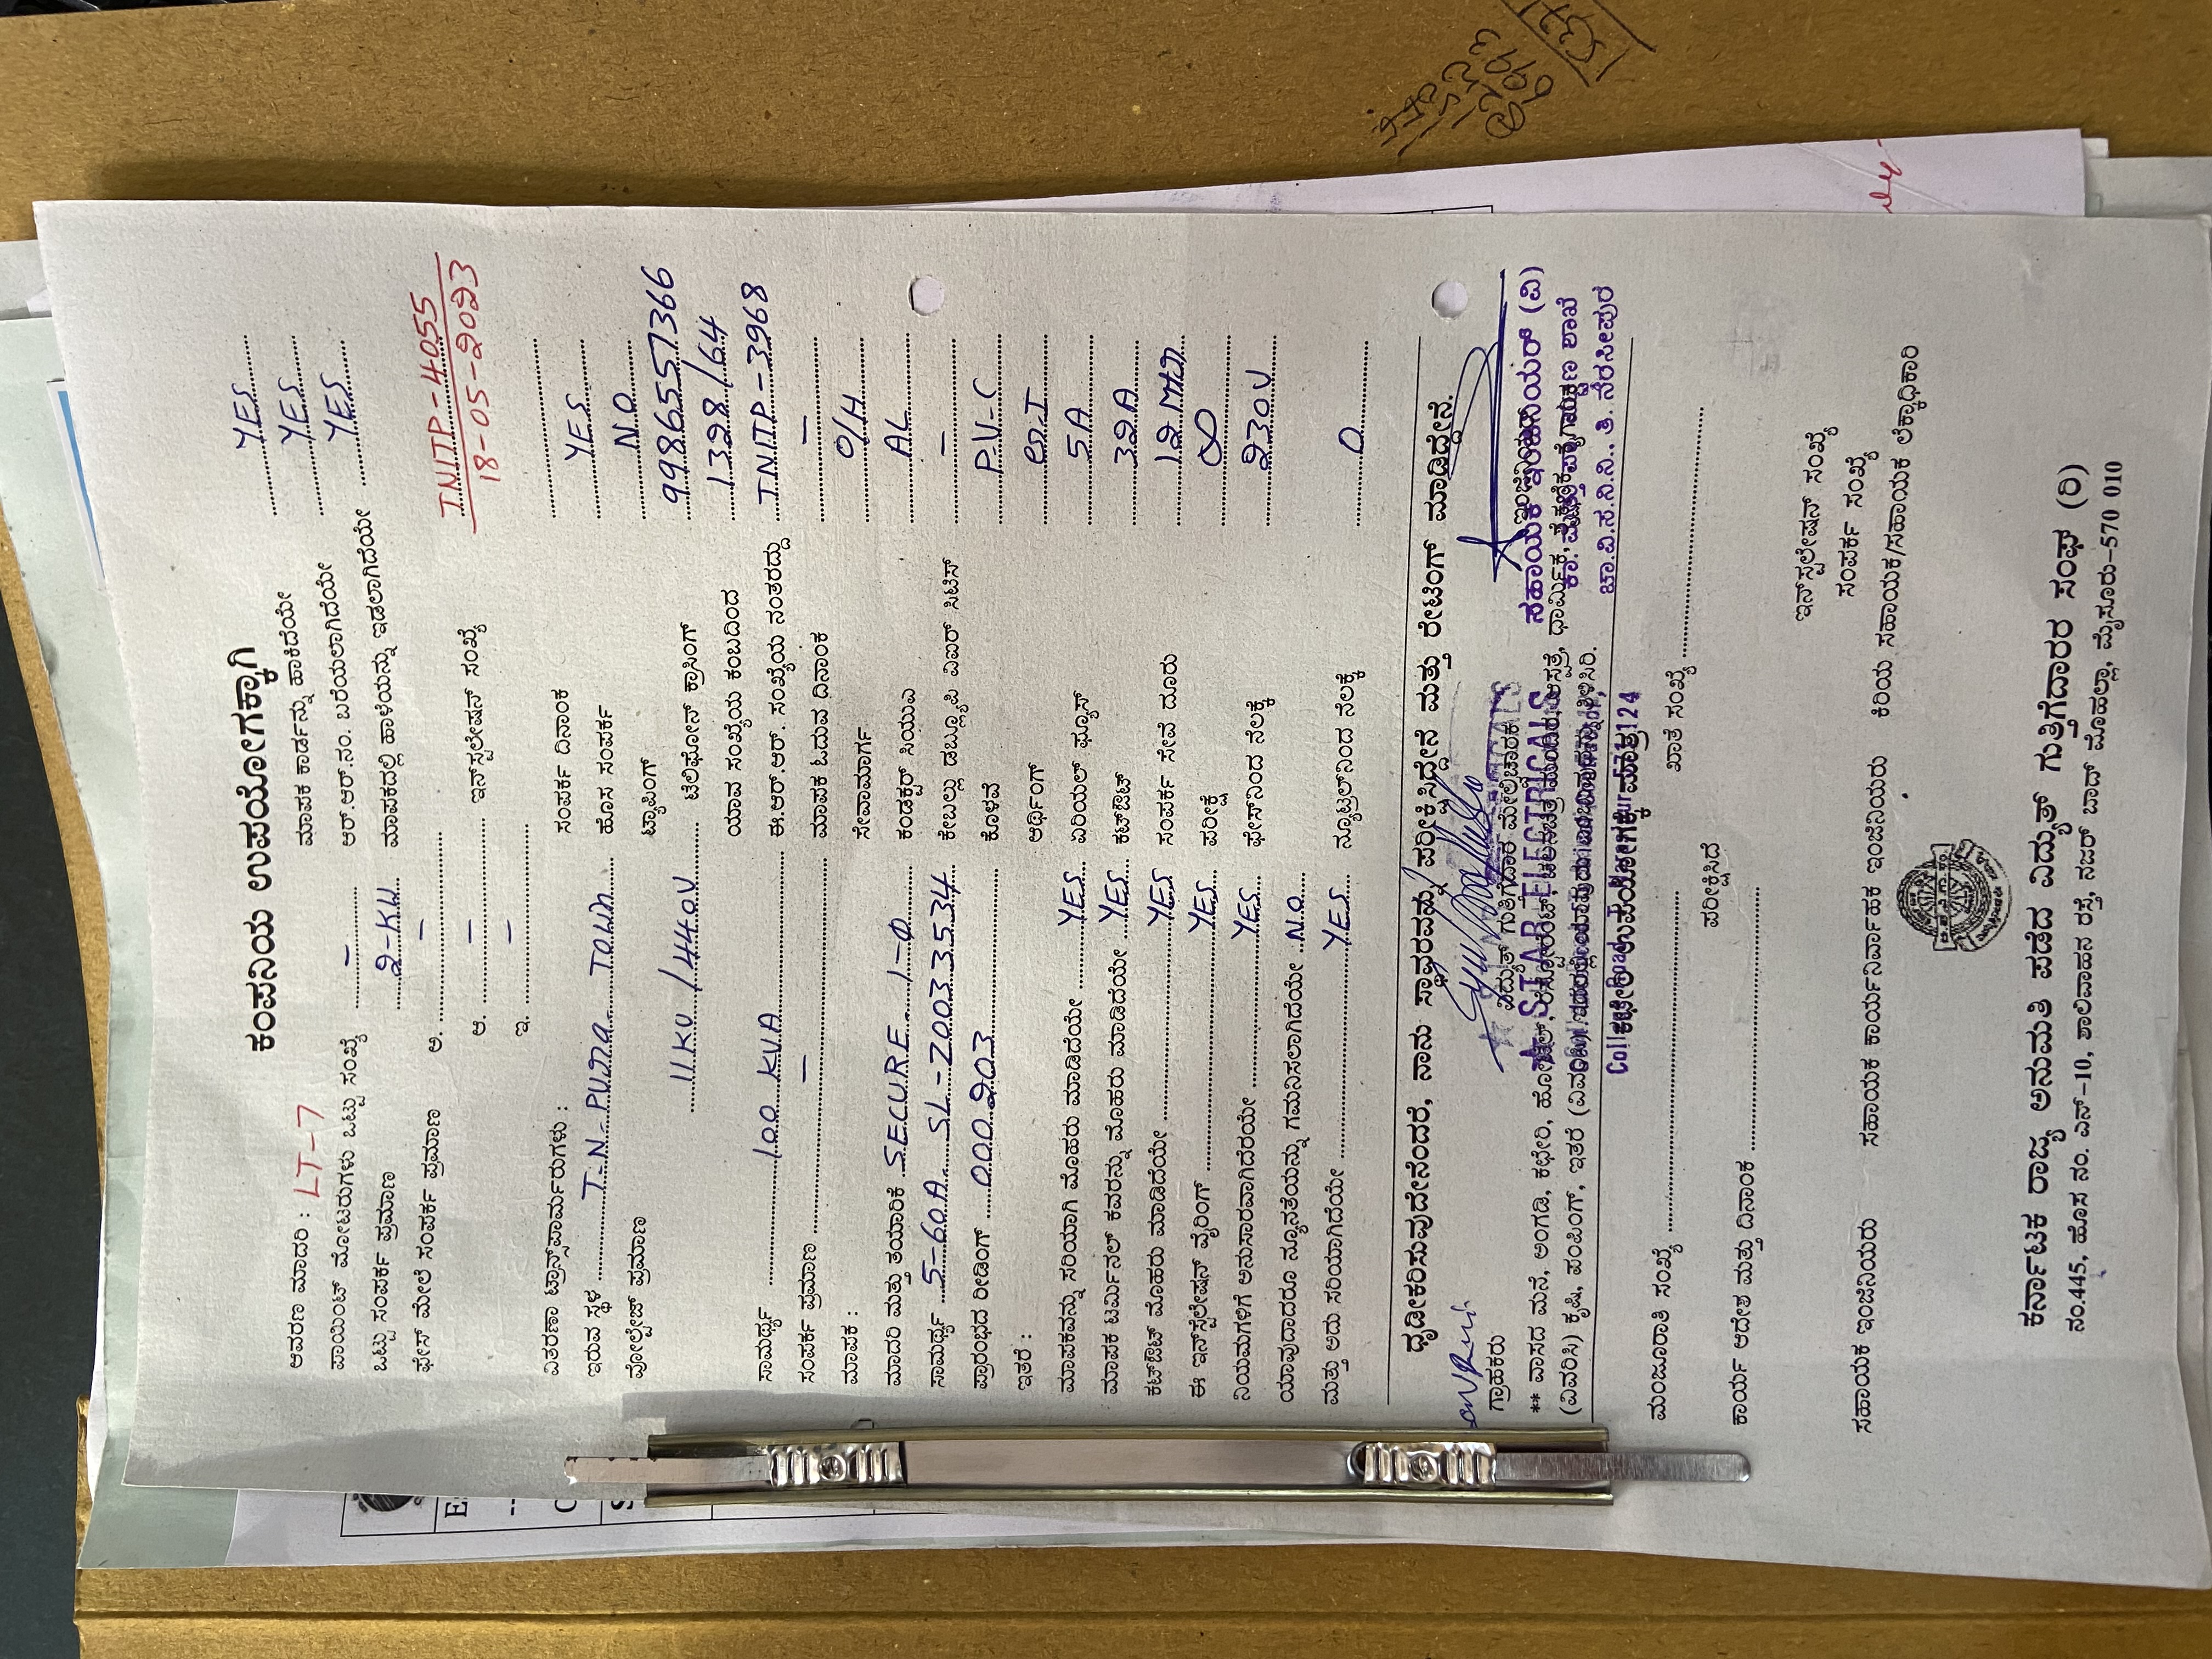 ಕಂಪನಿಯ ಉಪಯೋಗಕ್ಕಾಗಿ
ಆವರಣ ಮಾದರಿ : LT-7 ಮಾಪಕ ಕಾರ್ಡನ್ನು ಹಾಕಿದೆಯೇ YES
ಪಾಯಿಂಟ್ ಮೋಟರುಗಳು ಒಟ್ಟು ಸಂಖ್ಯೆ – ಆರ್.ಆರ್.ನಂ. ಬರೆಯಲಾಗಿದೆಯೇ YES
ಒಟ್ಟು ಸಂಪರ್ಕ ಪ್ರಮಾಣ 2-KW ಮಾಪಕದಲ್ಲಿ ಹಾಳೆಯನ್ನು ಇಡಲಾಗಿದೆಯೇ YES
ಫೇಸ್ ಮೇಲೆ ಸಂಪರ್ಕ ಪ್ರಮಾಣ ಅ. –
ಆ. – ಇನ್‌ಸ್ಟಲೇಷನ್ ಸಂಖ್ಯೆ TNITP-4055
ಇ. – 18-05-2023
ವಿತರಣಾ ಟ್ರಾನ್ಸ್‌ಫಾರ್ಮರುಗಳು : ಸಂಪರ್ಕ ದಿನಾಂಕ
ಇರುವ ಸ್ಥಳ T-N-PURA TOWN ಹೊಸ ಸಂಪರ್ಕ YES
ವೋಲ್ಟೇಜ್ ಪ್ರಮಾಣ ಟ್ಯಾಪಿಂಗ್ NO
11KV/440V ಟೆಲಿಫೋನ್ ಕ್ರಾಸಿಂಗ್ 9986557366
ಯಾವ ಸಂಖ್ಯೆಯ ಕಂಬದಿಂದ 1328/64
ಸಾಮರ್ಥ್ಯ 100 KVA ಈ.ಆರ್.ಆರ್. ಸಂಖ್ಯೆಯ ನಂತರದ್ದು TNITP-3968
ಸಂಪರ್ಕ ಪ್ರಮಾಣ – ಮಾಪಕ ಓದುವ ದಿನಾಂಕ –
ಮಾಪಕ : ಸೇವಾಮಾರ್ಗ O/H
ಮಾದರಿ ಮತ್ತು ತಯಾರಿಕೆ SECURE 1-Φ ಕಂಡಕ್ಟರ್ ಸಿಯುಎ AL
ಸಾಮರ್ಥ್ಯ 5-60A SL-20033534 ಕೇಬಲ್ಲು ಡಬ್ಲ್ಯೂಪಿ ವಿಐಆರ್ ಸಿಟಿಸ್ –
ಪ್ರಾರಂಭದ ರೀಡಿಂಗ್ 000203 ಕೊಳವೆ P.V-C
ಇತರೆ : ಆರ್ಥಿಂಗ್
ಮಾಪಕವನ್ನು ಸರಿಯಾಗಿ ಮೊಹರು ಮಾಡಿದೆಯೇ YES ಏರಿಯಲ್ ಫ್ಯೂಸ್ 5A
ಮಾಪಕ ಟರ್ಮಿನಲ್ ಕವರನ್ನು ಮೊಹರು ಮಾಡಿದೆಯೇ YES ಕಟ್‌ಔಟ್ 32A
ಕಟ್‌ಔಟ್ ಮೊಹರು ಮಾಡಿದೆಯೇ YES ಸಂಪರ್ಕ ಸೇವೆ ದೂರ 12 Mtr
ಈ ಇನ್‌ಸ್ಟಲೇಷನ್ ವೈರಿಂಗ್ YES ಪರೀಕ್ಷೆ ∞
ನಿಯಮಗಳಿಗೆ ಅನುಸಾರವಾಗಿದೆಯೇ YES ಫೇಸ್‌ನಿಂದ ನೆಲಕ್ಕೆ 230V
ಯಾವುದಾದರೂ ನ್ಯೂನತೆಯನ್ನು ಗಮನಿಸಲಾಗಿದೆಯೇ NO
ಮತ್ತು ಅದು ಸರಿಯಾಗಿದೆಯೇ YES ನ್ಯೂಟ್ರಲ್‌ನಿಂದ ನೆಲಕ್ಕೆ 0
ಧೃಡೀಕರಿಸುವುದೇನೆಂದರೆ, ನಾನು ಸ್ಥಾವರವನ್ನು ಪರೀಕ್ಷಿಸಿದ್ದೇನೆ ಮತ್ತು ರೇಟಿಂಗ್ ಮಾಡಿದ್ದೇನೆ.
ಗ್ರಾಹಕರು ವಿದ್ಯುತ್ ಗುತ್ತಿಗೆದಾರ ಮೇಲ್ವಿಚಾರಕ
ಸಹಾಯಕ ಇಂಜಿನಿಯರ್ (ವಿ)
STAR ELECTRICALS
** ವಾಸದ ಮನೆ, ಅಂಗಡಿ, ಕಛೇರಿ, ಹೋಟೆಲ್,
ಚಾ.ವಿ.ಸ.ನಿ.ನಿ., ತಿ. ನರಸೀಪುರ
(ವಿವರಿಸಿ) ಕೃಷಿ, ಪಂಪಿಂಗ್, ಇತರೆ
ಕಛೇರಿ ಉಪಯೋಗಕ್ಕೆ ಮಾತ್ರ
ಮಂಜೂರಾತಿ ಸಂಖ್ಯೆ ಖಾತೆ ಸಂಖ್ಯೆ
ಪರೀಕ್ಷಿಸಿದೆ
ಕಾರ್ಯ ಆದೇಶ ಮತ್ತು ದಿನಾಂಕ
ಇನ್‌ಸ್ಟಲೇಷನ್ ಸಂಖ್ಯೆ
ಸಂಪರ್ಕ ಸಂಖ್ಯೆ
ಸಹಾಯಕ ಇಂಜಿನಿಯರು ಸಹಾಯಕ ಕಾರ್ಯನಿರ್ವಾಹಕ ಇಂಜಿನಿಯರು ಕಿರಿಯ ಸಹಾಯಕ/ಸಹಾಯಕ ಲೆಕ್ಕಾಧಿಕಾರಿ
ಕರ್ನಾಟಕ ರಾಜ್ಯ ಅನುಮತಿ ಪಡೆದ ವಿದ್ಯುತ್ ಗುತ್ತಿಗೆದಾರರ ಸಂಘ (ರಿ)
ನಂ.445, ಹೊಸ ನಂ. ಎನ್-10, ಶಾಲಿವಾಹನ ರಸ್ತೆ, ನಜರ್ ಬಾದ್ ಮೊಹಲ್ಲಾ, ಮೈಸೂರು-570 010